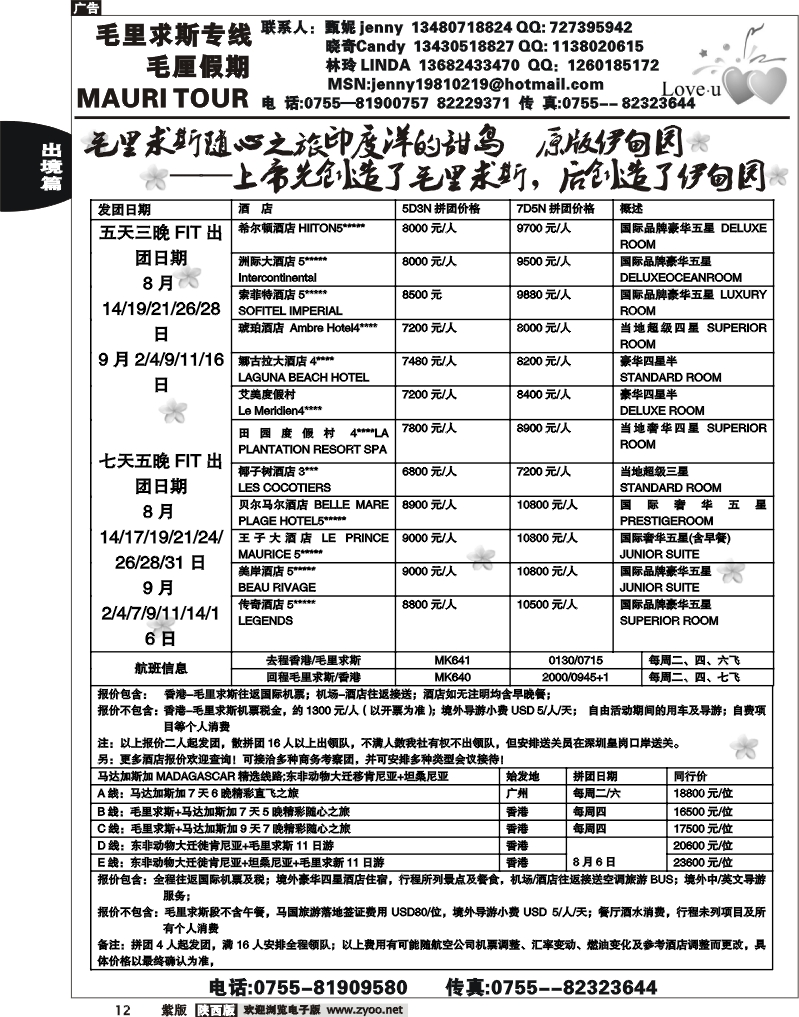 广告
毛里求斯专线
毛厘假期
MAURI TOUR
联系人：甄妮 jenny 13480718824 QQ: 727395942
晓奇Candy 13430518827 QQ: 1138020615
林玲 LINDA 13682433470 QQ: 1260185172
MSN:jenny19810219@hotmail.com
电 话:0755—81900757 82229371 传 真:0755-- 82323644
Love·u
出境篇
毛里求斯随心之旅印度洋的甜岛 原版伊甸园
——上帝先创造了毛里求斯，后创造了伊甸园
发团日期 酒 店 5D3N 拼团价格 7D5N 拼团价格 概述
五天三晚 FIT 出
团日期
8 月
14/19/21/26/28
日
9 月 2/4/9/11/16
日
七天五晚 FIT 出
团日期
8 月
14/17/19/21/24/
26/28/31 日
9 月
2/4/7/9/11/14/1
6 日
希尔顿酒店 HIITON5***** 8000 元/人 9700 元/人 国际品牌豪华五星 DELUXE
ROOM
洲际大酒店 5***** 8000 元/人 9500 元/人 国际品牌豪华五星
Intercontinental DELUXEOCEANROOM
索菲特酒店 5***** 8500 元 9880 元/人 国际品牌豪华五星 LUXURY
SOFITEL IMPERIAL ROOM
琥珀酒店 Ambre Hotel4**** 7200 元/人 8000 元/人 当地超级四星 SUPERIOR
ROOM
娜古拉大酒店 4**** 7480 元/人 8200 元/人 豪华四星半
LAGUNA BEACH HOTEL STANDARD ROOM
艾美度假村 7200 元/人 8400 元/人 豪华四星半
Le Meridien4**** DELUXE ROOM
田园度假村 4****LA 7800 元/人 8900 元/人 当地奢华四星 SUPERIOR
PLANTATION RESORT SPA ROOM
椰子树酒店 3*** 6800 元/人 7200 元/人 当地超级三星
LES COCOTIERS STANDARD ROOM
贝尔马尔酒店 BELLE MARE 8900 元/人 10800 元/人 国际奢华五星
PLAGE HOTEL5***** PRESTIGEROOM
王子大酒店 LE PRINCE 9000 元/人 10300 元/人 国际奢华五星(含早餐)
MAURICE 5***** JUNIOR SUITE
美岸酒店 5***** 9000 元/人 10800 元/人 国际品牌豪华五星
BEAU RIVAGE JUNIOR SUITE
传奇酒店 5***** 8800 元/人 10500 元/人 国际品牌豪华五星
LEGENDS SUPERIOR ROOM
航班信息 去程香港/毛里求斯 MK641 0130/0715 每周二、四、六飞
回程毛里求斯/香港 MK640 2000/0945+1 每周二、四、七飞
报价包含： 香港-毛里求斯往返国际机票；机场-酒店往返接送；酒店如无注明均含早晚餐；
报价不包含：香港-毛里求斯机票税金，约 1300 元/人（以开票为准）；境外导游小费 USD 5/人/天； 自由活动期间的用车及导游；自费项
目等个人消费
注：以上报价二人起发团，散拼团 16 人以上出领队，不满人数我社有权不出领队，但安排送关员在深圳皇岗口岸送关。
另：更多酒店报价欢迎查询！可接洽多种商务考察团，并可安排多种类型会议接待！
马达加斯加 MADAGASCAR 精选线路;东非动物大迁移肯尼亚+坦桑尼亚 始发地 拼团日期 同行价
A 线：马达加斯加 7 天 6 晚精彩直飞之旅 广州 每周二/六 18800 元/位
B 线：毛里求斯+马达加斯加 7 天 5 晚精彩随心之旅 香港 每周四 16500 元/位
C 线：毛里求斯+马达加斯加 9 天 7 晚精彩随心之旅 香港 每周四 17500 元/位
D 线：东非动物大迁徙肯尼亚+毛里求斯 11 日游 香港 20600 元/位
E 线：东非动物大迁徙肯尼亚+坦桑尼亚+毛里求新 11 日游 香港 8 月 6 日 23600 元/位
报价包含：全程往返国际机票及税；境外豪华四星酒店住宿，行程所列景点及餐食，机场/酒店往返接送空调旅游 BUS；境外中/英文导游
服务；
报价不包含：毛里求斯段不含午餐，马国旅游落地签证费用 USD80/位，境外导游小费 USD 5/人/天；餐厅酒水消费，行程未列项目及所
有个人消费
备注：拼团 4 人起发团，满 16 人安排全程领队；以上费用有可能随航空公司机票调整、汇率变动、燃油变化及参考酒店调整而更改，具
体价格以最终确认为准，
电话:0755-81909580 传真:0755--82323644
12 紫版 陕西版 欢迎浏览电子版 www.zyoo.net